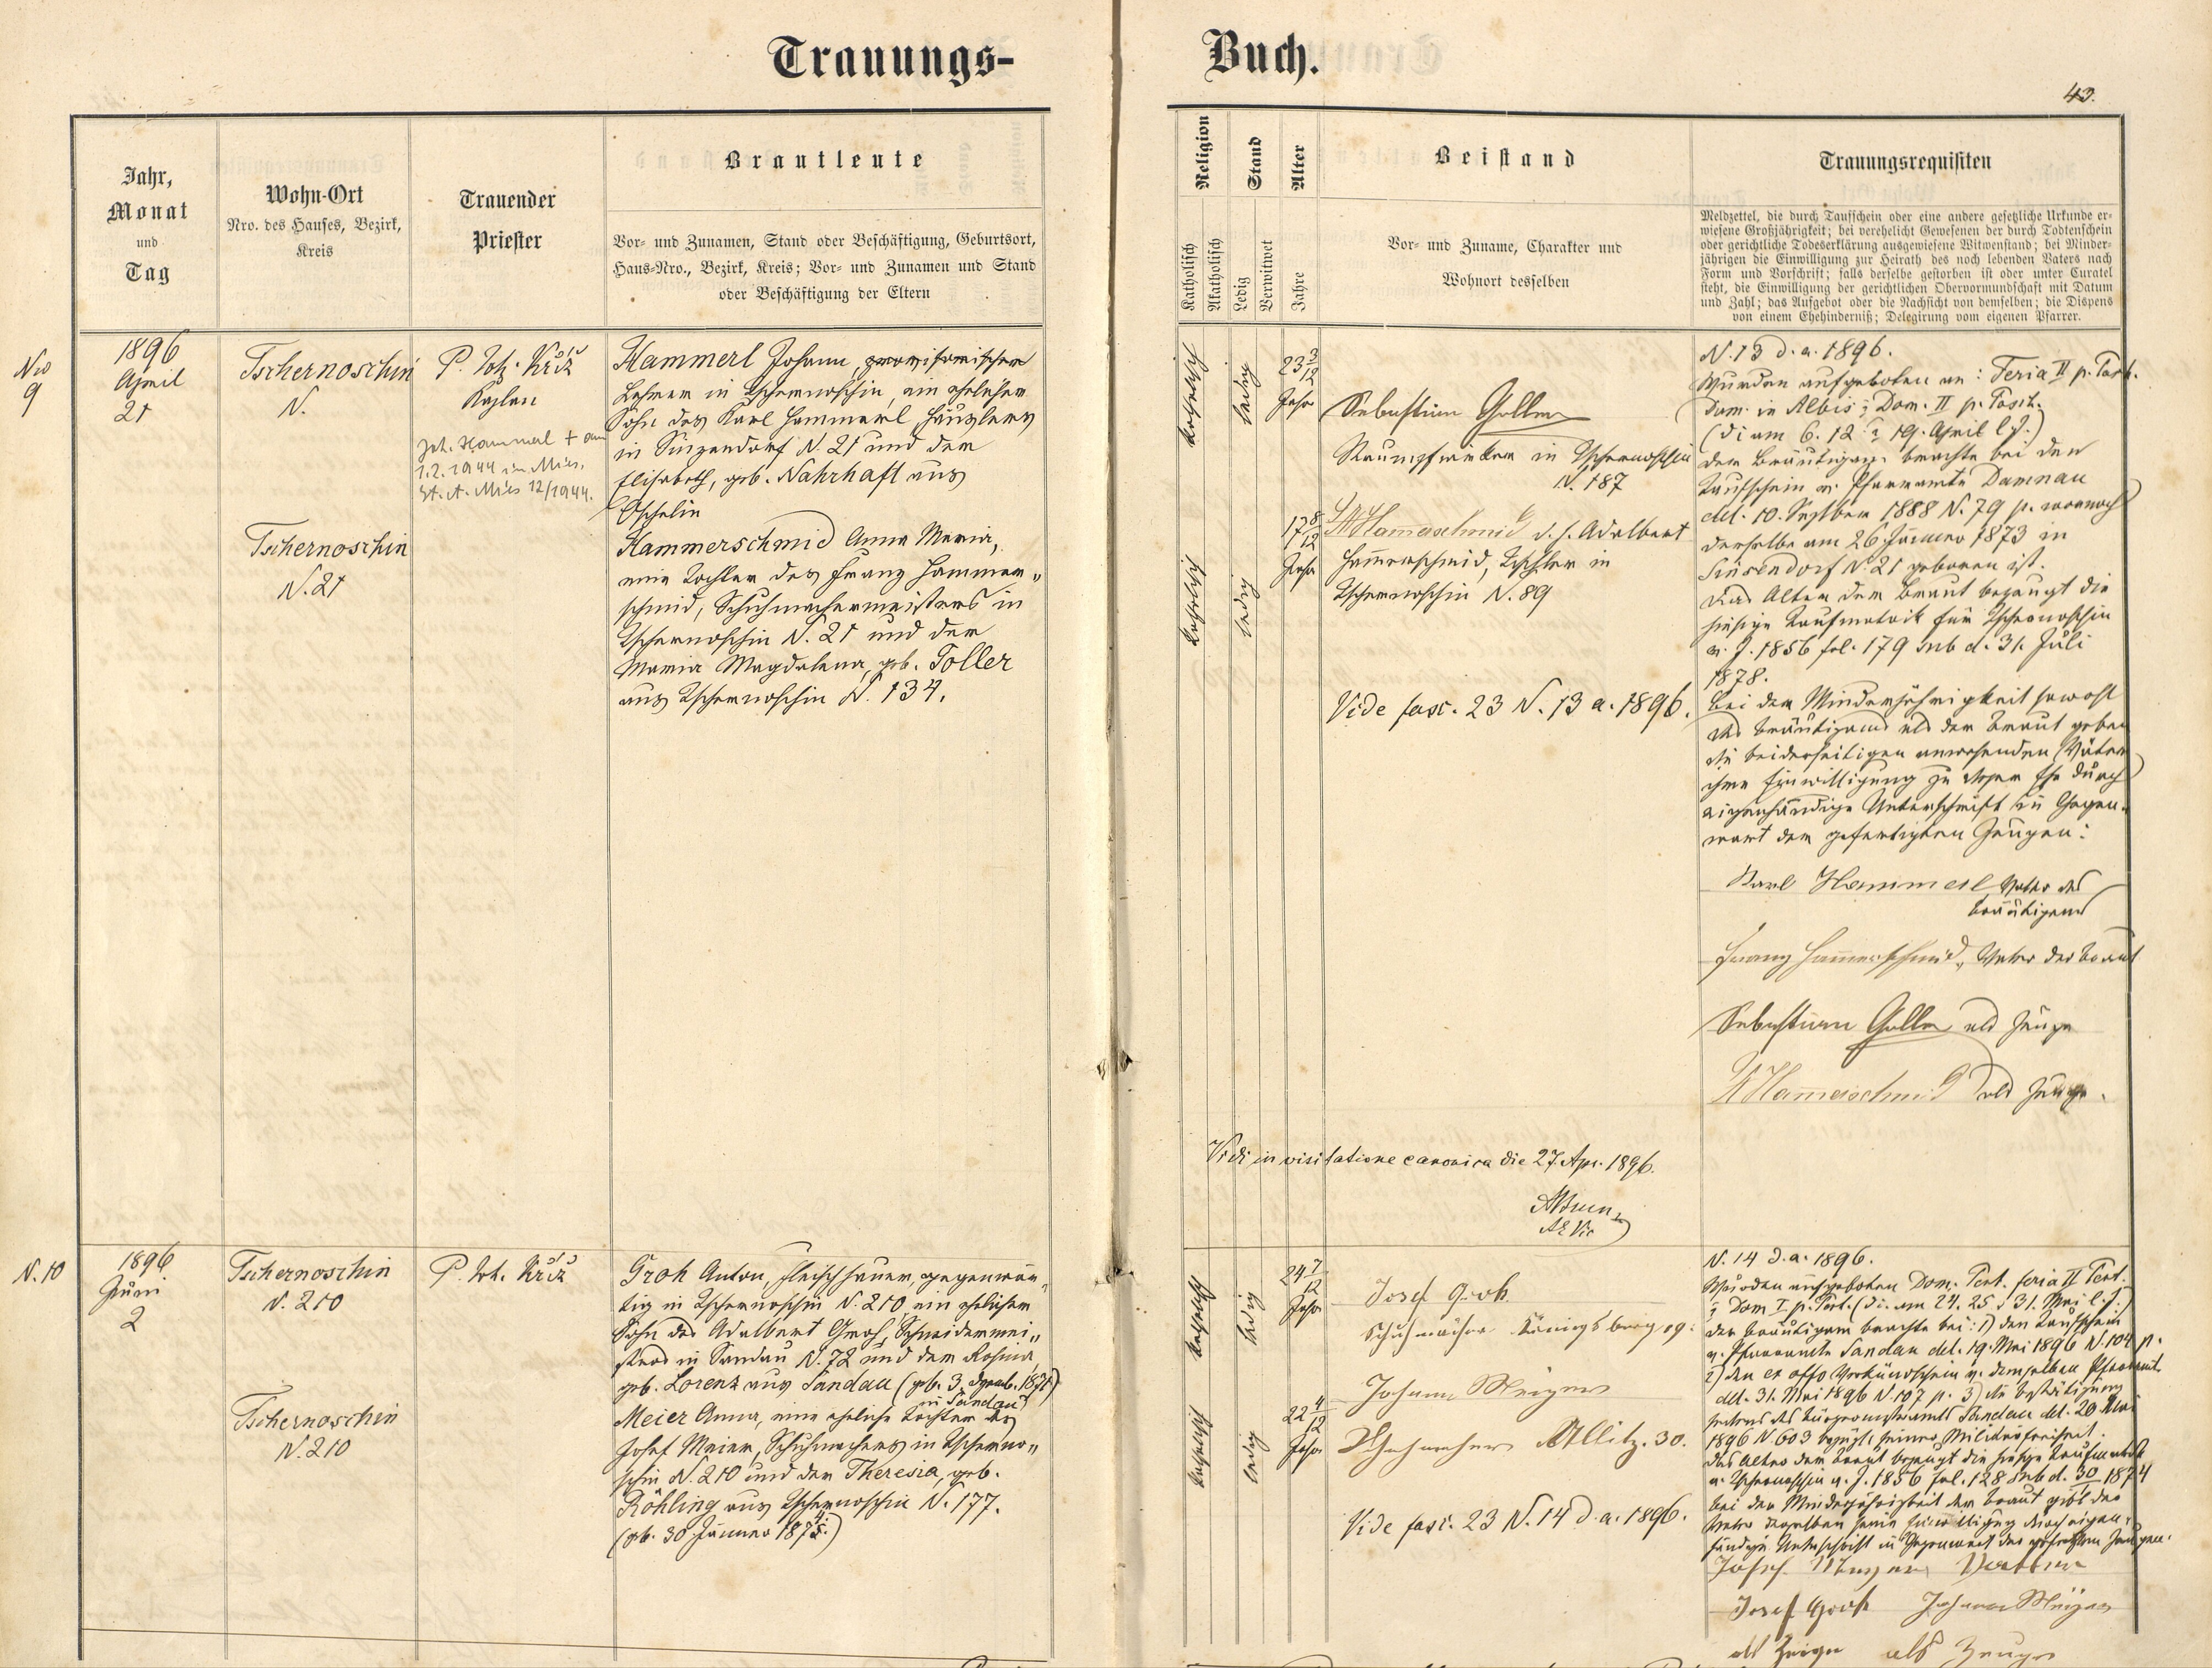 Trauungs-
Buch.
43.
Jahr,
Monat
und
Tag
Wohn-Ort
Nro. des Hauses, Bezirk,
Kreis
Trauender
Priester
Brautleute
Vor- und Zunamen, Stand oder Beschäftigung, Geburtsort,
Haus-Nro., Bezirk, Kreis; Vor- und Zunamen und Stand
oder Beschäftigung der Eltern
Religion
Katholisch
Akatholisch
Stand
Ledig
Verwitwet
Alter
Jahre
Beistand
Vor- und Zuname, Charakter und
Wohnort desselben
Trauungsrequisiten
Meldzettel, die durch Taufschein oder eine andere gesetzliche Urkunde er-
wiesene Großjährigkeit; bei verehelicht Gewesenen der durch Todtenschein
oder gerichtliche Todeserklärung ausgewiesene Witwenstand; bei Minder-
jährigen die Einwilligung zur Heirath des noch lebenden Vaters nach
Form und Vorschrift; falls derselbe gestorben ist oder unter Curatel
steht, die Einwilligung der gerichtlichen Obervormundschaft mit Datum
und Zahl; das Aufgebot oder die Nachsicht von demselben; die Dispens
von einem Ehehinderniß; Delegirung vom eigenen Pfarrer.
Nro
9
1896
April
21
Tschernoschin
N.
P. Joh. Kříž
Kaplan
Joh. Hammerl + am
1.2.1944 in Mies.
St. A. Mies 12/1944.
Hammerl Johann, provisorischer
Lehrer in Tschernoschin, ein ehelicher
Sohn des Karl Hammerl Häuslers
in Sinzendorf N. 21 und der
Elisabeth, geb. Nahrhaft aus
Oschelin
Tschernoschin
N. 21
Hammerschmid Anna Maria,
eine Tochter des Franz Hammer„
schmid, Schuhmachermeisters in
Tschernoschin N. 21 und der
Maria Magdalena, geb. Toller
aus Tschernoschin N. 134.
katholisch
ledig
23 3/12
Jahr
Sebastian Goller
Rauchfangkehrer in Tschernoschin
N. 187
katholisch
ledig
17 8/12
Jahr
A Hammerschmid d. h. Adalbert
Hammerschmid, Tischler in
Tschernoschin N. 89
Vide fasc. 23 N. 13 a. 1896.
N. 13 d. a. 1896.
Wurden aufgeboten an: Feria II p. Pasch.
Dom. in Albis; Dom. II p. Pasch.
(di am 6. 12. & 19. April l. J.)
Der Bräutigam brachte bei den
Taufschein v. Pfarramte Damnau
ddt. 10. Septber 1888 N. 79 p. wornach
derselbe am 26 Jänner 1873 in
Sinsendorf N. 21 geboren ist.
Das Alter der Braut bezeugt die
hiesige Taufmatrik für Tschernoschin
v. J. 1856 fol. 179 sub d. 31. Juli
1878.
Bei der Minderjährigkeit sowohl
des Bräutigams als der Braut geben
die beiderseitigen anwesenden Väter
ihre Einwilligung zu dieser Ehe durch
eigenhändige Unterschrift in Gegen„
wart der gefertigten Zeugen:
Karl Hammerl Vater des
Bräutigams
Franz Hammerschmid, Vater der Braut
Sebastian Goller als Zeuge
A Hammerschmid als Zeuge.
Vidi in visitatione canonica die 27. Apr. 1896.
N. 10
1896
Juni
2
Tschernoschin
N. 210
P. Joh. Kříž
Groh Anton, Fleischhauer, gegenwär„
tig in Tschernoschin N. 210 ein ehelicher
Sohn des Adalbert Groh, Schneidermei„
sters in Sandau N. 72 und der Rosina,
geb. Lorenz aus Sandau (geb. 3. Novb. 1871)
in Sandau
Tschernoschin
N. 210
Meier Anna, eine eheliche Tochter des
Josef Meier, Schuhmachers in Tscherno„
schin N. 210 und der Theresia, geb.
Röhling aus Tschernoschin N. 177.
(geb. 30 Jänner 1874.)
katholisch
ledig
24 7/12
Jahr
Josef Groh
Schuhmacher Königsberg 19.
katholisch
ledig
22 4/12
Jahr
Johann Meiger
Schuhmacher Ollitz. 30.
Vide fasc. 23 N. 14 d. a. 1896.
N. 14 d. a. 1896.
Wurden aufgeboten Dom. Pent. feria II Pent.
& Dom I. p. Pent. (di. am 24. 25 & 31. Mai l. J.)
Der Bräutigam brachte bei: 1) den Taufschein
v. Pfarramte Sandau ddt. 19. Mai 1896 N. 104 p.
2) den ex offo Verkündschein v. demselben Pfarramt.
ddt. 31. Mai 1896 N 107 p. 3) die Bestätigung
seitens des Bürgermeisteramts Sandau ddt. 20 Mai
1896 N 603 bezügl. seiner Militärfreiheit.
Das Alter der Braut bezeugt die hiesige Taufmatrik
v. Tschernoschin v. J. 1856 fol. 128 sub d. 30/1 1874
Bei der Minderjährigkeit der Braut gibt der
Vater derselben seine Einwilligung durch eigen„
händige Unterschrift in Gegenwart der gefertigten Zeugen.
Josef Meyer Vater
Josef Groh Johann Meiger
als Zeuge als Zeuge